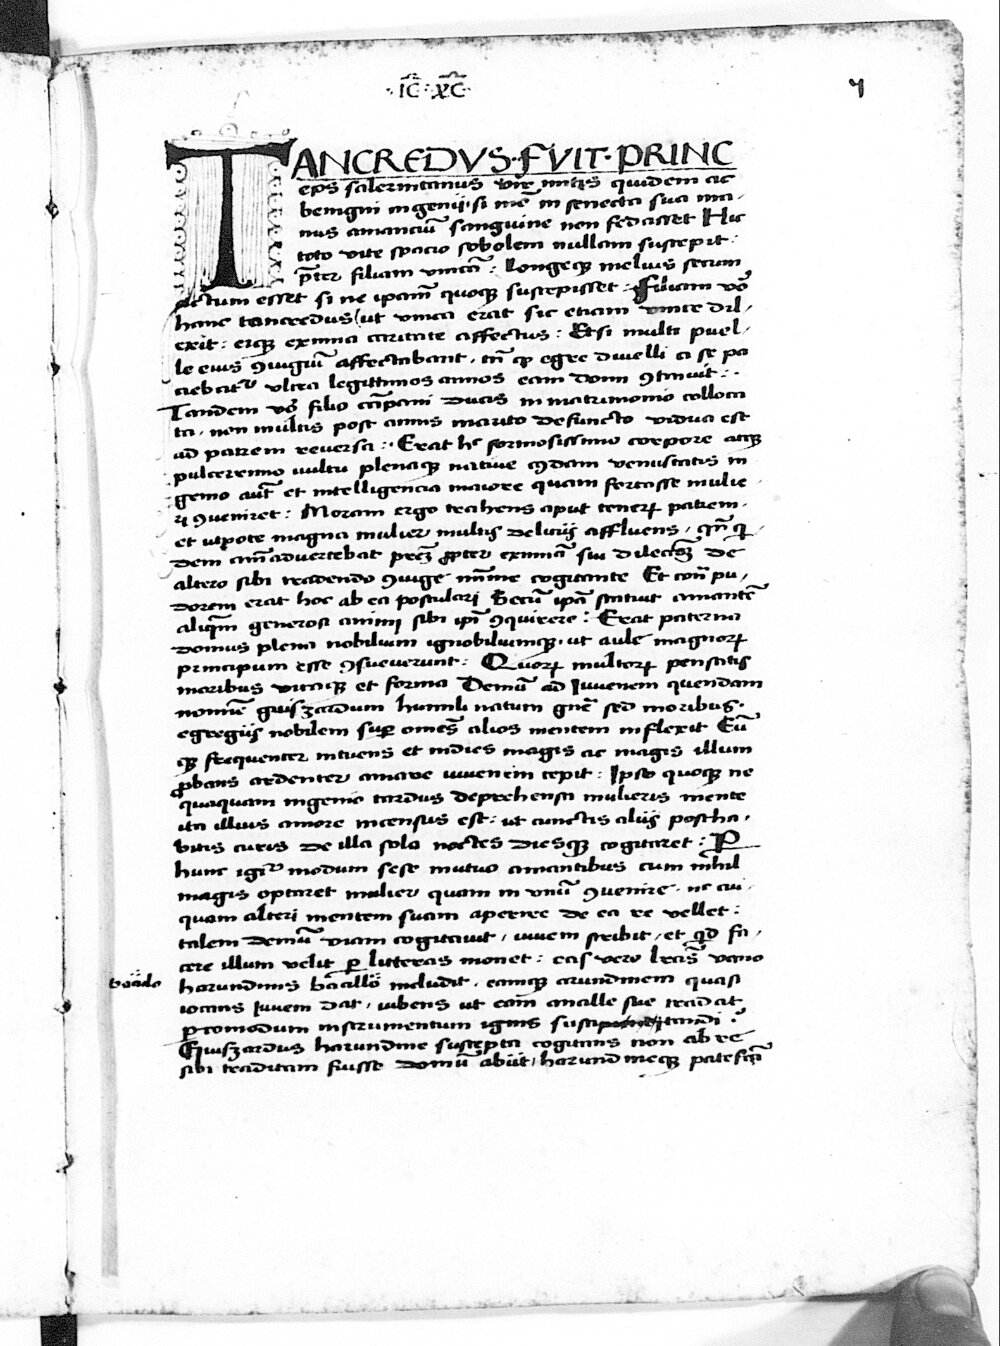 ·IC̄·XC̄·
TANCREDVS·FVIT·PRINC
eps salernitanus vir mitis quidem ac
benigni ingenij: si mō in senecta sua ma
nus amanciū sanguine non fedasset Hic
toto vite spacio sobolem nullam suscepit:
p̄ter filiam vnicā: Longeqꝫ melius secum
actum esset si ne ipam̄ quoqꝫ suscepisset: Filiam vō
hanc tancredus (ut vnica erat sic etiam vnice dil/
exit: eiqꝫ eximia caritate affectus: Etsi multi puel/
le eius ꝯiugiū affectabant, tn̄ qꝫ egre diuelli a se pa
ciebat᷑ vltra legittimos annos eam domi ꝯtinuit:·
Tandem vō filio cāpani ducis in matrimonio colloca
ta, non multis post annis marito defuncto vidua est
ad patrem reuersa: Erat hec formosissimo corpore atqꝫ
pulcerrimo uultu plenaqꝫ natiue ꝯdam venustatis in
genio aut̄ et intelligencia maiore quam fortasse mulie/
ri ꝯueniret: Moram ergo trahens aput tenerꝝ patrem,
et utpote magna mulier multis delicijs affluens,
dem aīaduertebat prēꝫ ꝓpter eximiā sui dilecōꝫ de
altero sibi tradendo ꝯiuge minime cogitante Et cont̄ pu/
dorem erat hoc ab eo postulari Secū ipā statuit amantē
aliqm̄ generosi animi sibi ipī ꝯquirere: Erat paterna
domus plena nobilium ignobiliumqꝫ, ut aule magnorꝝ
principum esse ꝯsueuerunt: Quorꝝ multorꝝ pensatis
moribus vitaqꝫ et forma Demū ad Iuuenem quendam
nomīe guisꝫardum humili natum gn̄e sed moribus,
egregijs nobilem suꝑ omēs alios mentem inflexit Eū
qꝫ frequenter intuens et indies magis ac magis illum
ꝓbans ardenter amare iuuenem cepit: Ipse quoqꝫ ne
quaquam ingenio tardus deprehensa mulieris mente
ita illius amore incensus est: ut cunctis alijs postha,
bitis curis de illa sola noctes diesqꝫ cogitaret: P
hunc igit᷑ modum sese mutuo amantibus cum nihil
magis optaret mulier quam in vnū ꝯuenire, nec cui/
quam alteri mentem suam aperire de ea re vellet:
talem demū viam cogitauit, iuuem scribit, et qd fa,
cere illum velit ꝑ litteras monet: eas vero lr̄as vano
harundinis bacillo includit, eamqꝫ arundinem quasi
iocans Iuuem dat, iubens ut eam ancille sue tradat
ꝑcomodum instrumentum ignis suscitandi:
Guisꝫardus harundine suscepta cogitans non ab re
sibi traditam fuisse domū abijt, harundineqꝫ patefc̄a